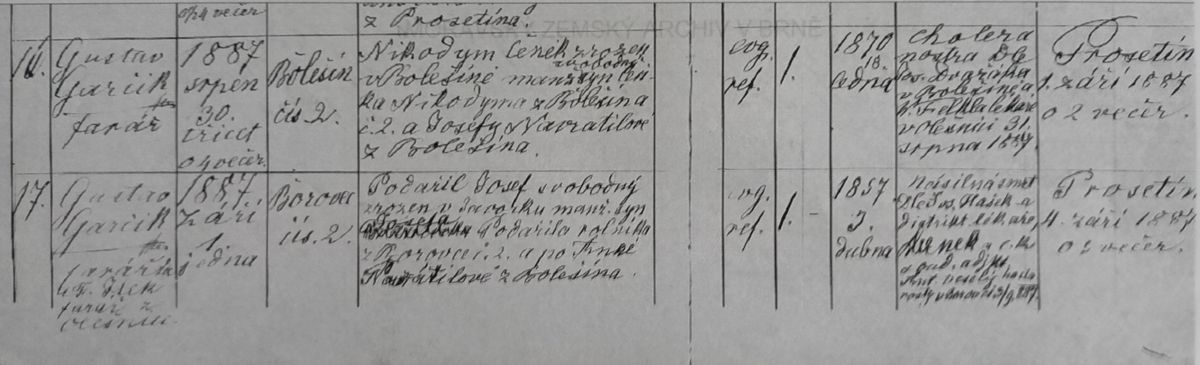 o 24 večer
z Prosetína.
MORAVSKÝ ZEMSKÝ ARCHIV V BRNĚ
16.
Gustav
Garčik
farář
1887
srpen
30.
třicet
o 4 večer.
Bolešín
čís. 2.
Nikodym Čeněk zrozen
svobodný
v Bolešíně manž. syn Čeň-
ka Nikodyma z Bolešína
č. 2. a Josefy Navratilové
z Bolešína.
evg.
ref.
1.
1870
18.
ledna
cholera
nostra dle
os. Dvořáka
v Bolešíně a
lékaře
v Olešnici 31.
srpna 1887.
Prosetín
1. září 1887
o 2 večer.
17.
Gustav
Garčik
farář
farář z
Olešnice.
1887
září
1.
jedna
Borovec
čís. 2.
Podařil Josef svobodný
zrozen v Javorku manž. syn
Josefa
Podařila rolníka
z Borovce č. 2. a po
Navrátilové z Bolešína.
evg.
ref.
1.
1857
3.
dubna
násilná smrt
dle os. Hašek a
distrikt. lékaře
a c. k.
Prosetín
4. září 1887
o 2 večer.